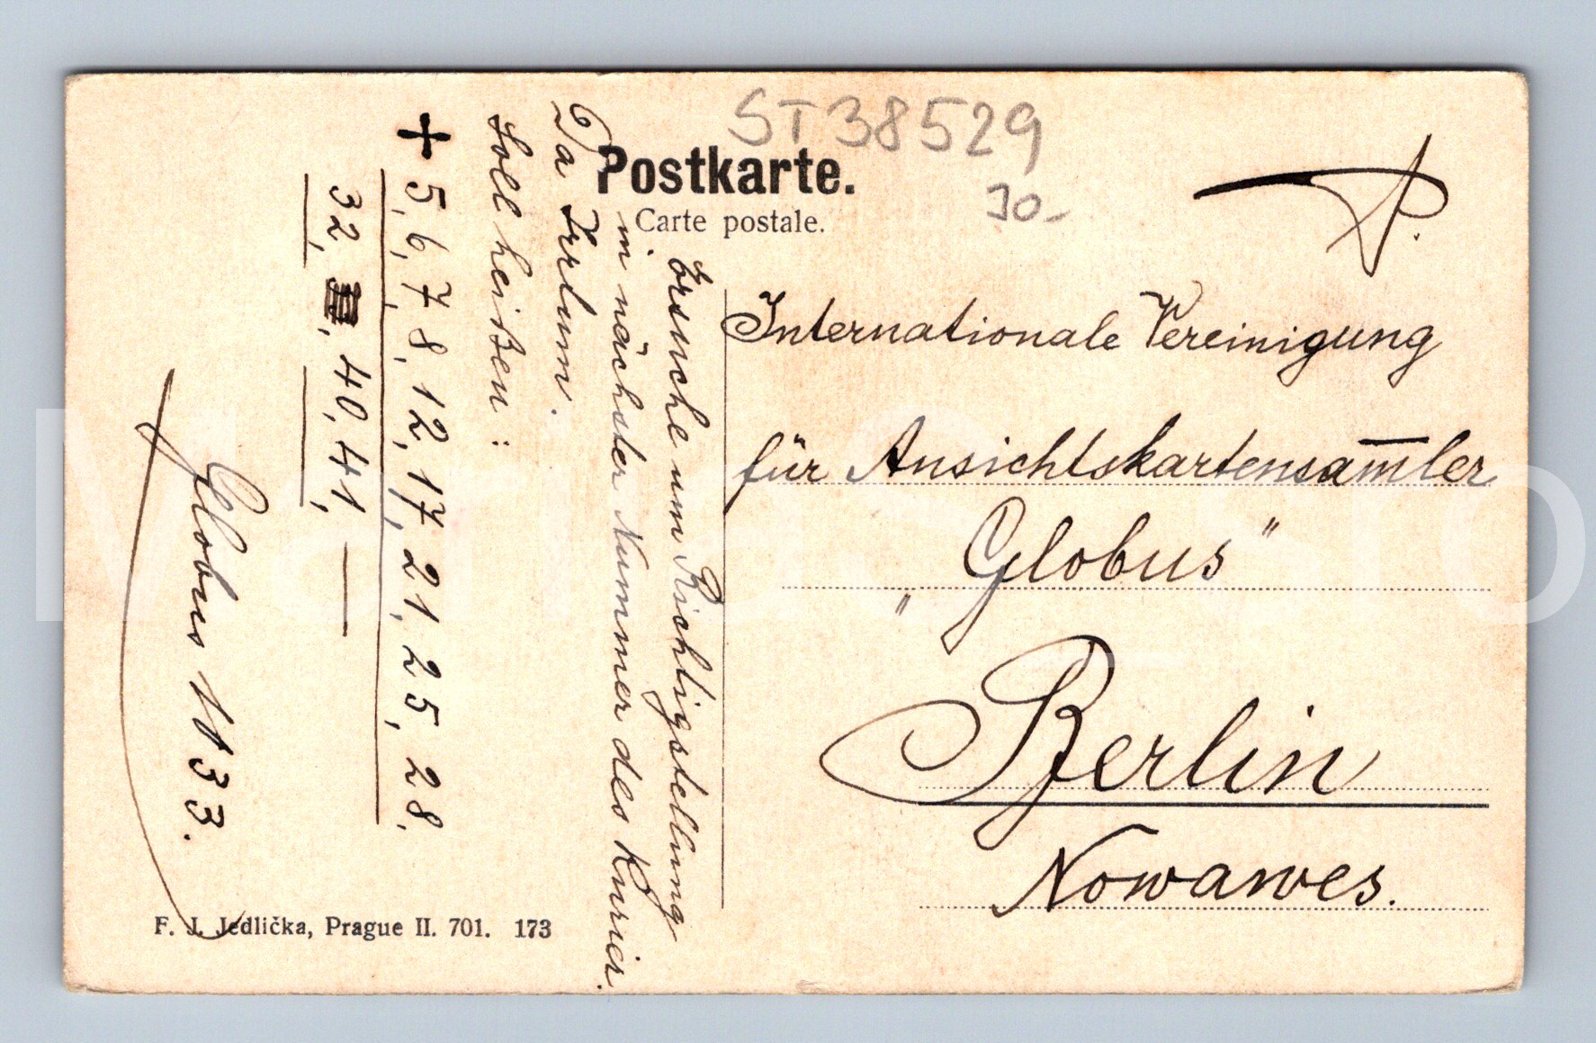 ST38529
30-
Postkarte.
Carte postale.
P.
Internationale Vereinigung
für Ansichtskartensam̅ler
„Globus"
Berlin
Nowawes.
Ersuche um Richtigstellung
in nächster Nummer des Kurier.
Da Irrtum.
Soll heißen:
+ 5, 6, 7, 8, 12, 17, 21, 25, 28,
32, 40, 41, —
Globus 1133.
F. J. Jedlička, Prague II. 701. 173